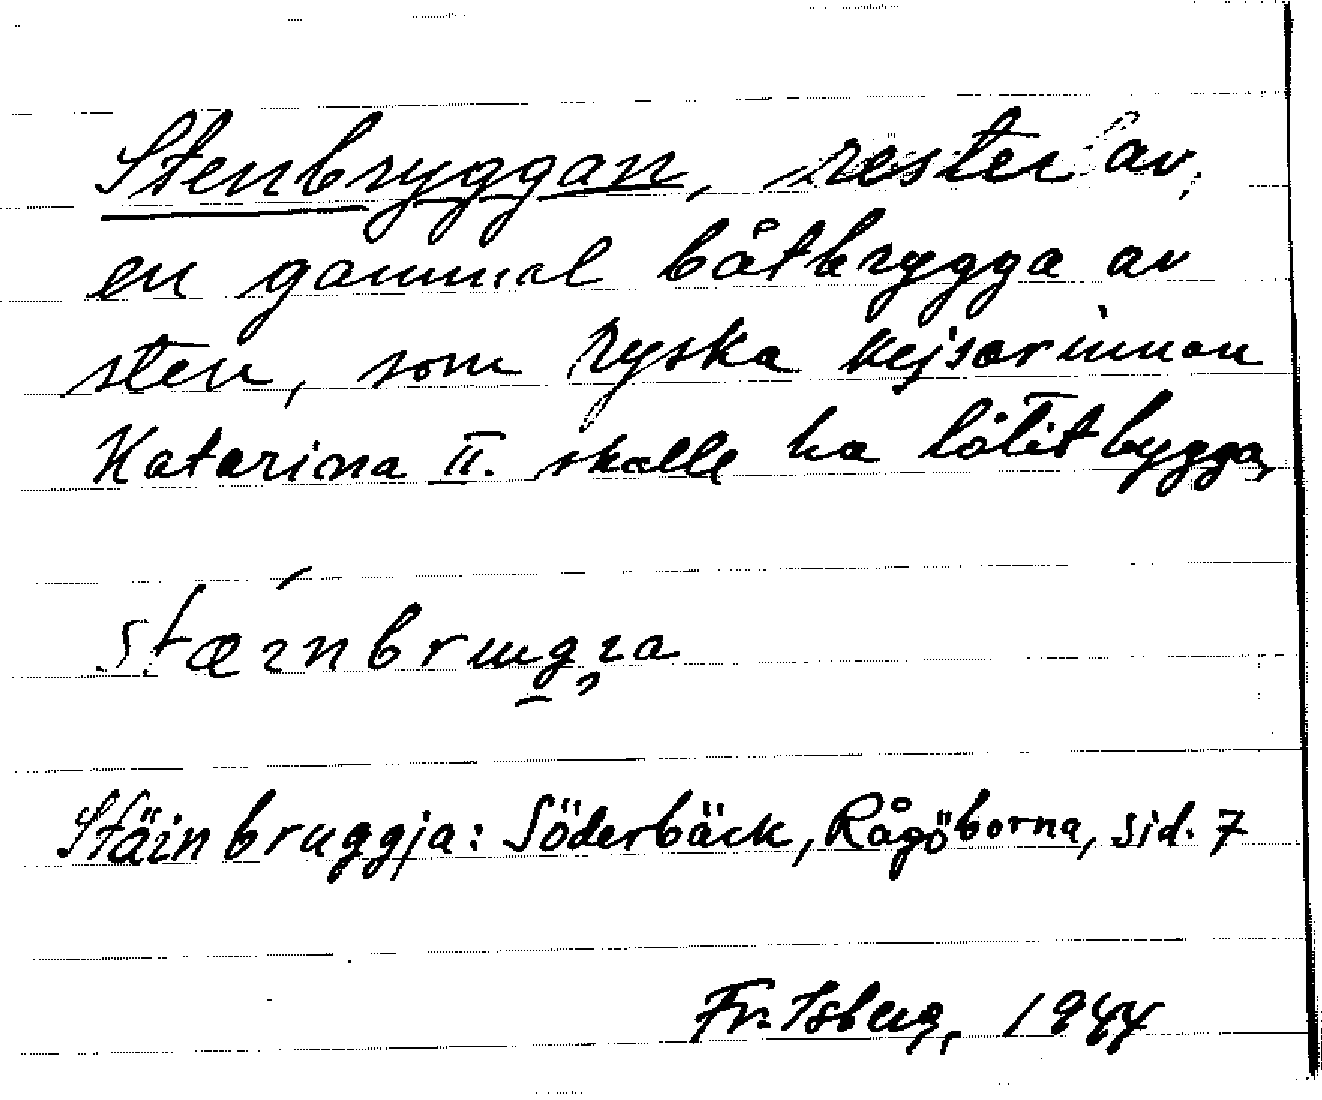 Stenbryggan, rester av
en gammal båtbrygga av
sten, som ryska kejsarinnan
Katarina II. skall ha låtit bygga,
Stäinbruggja: Söderbäck, Rågöborna, sid. 7
Fr. Isberg, 1944